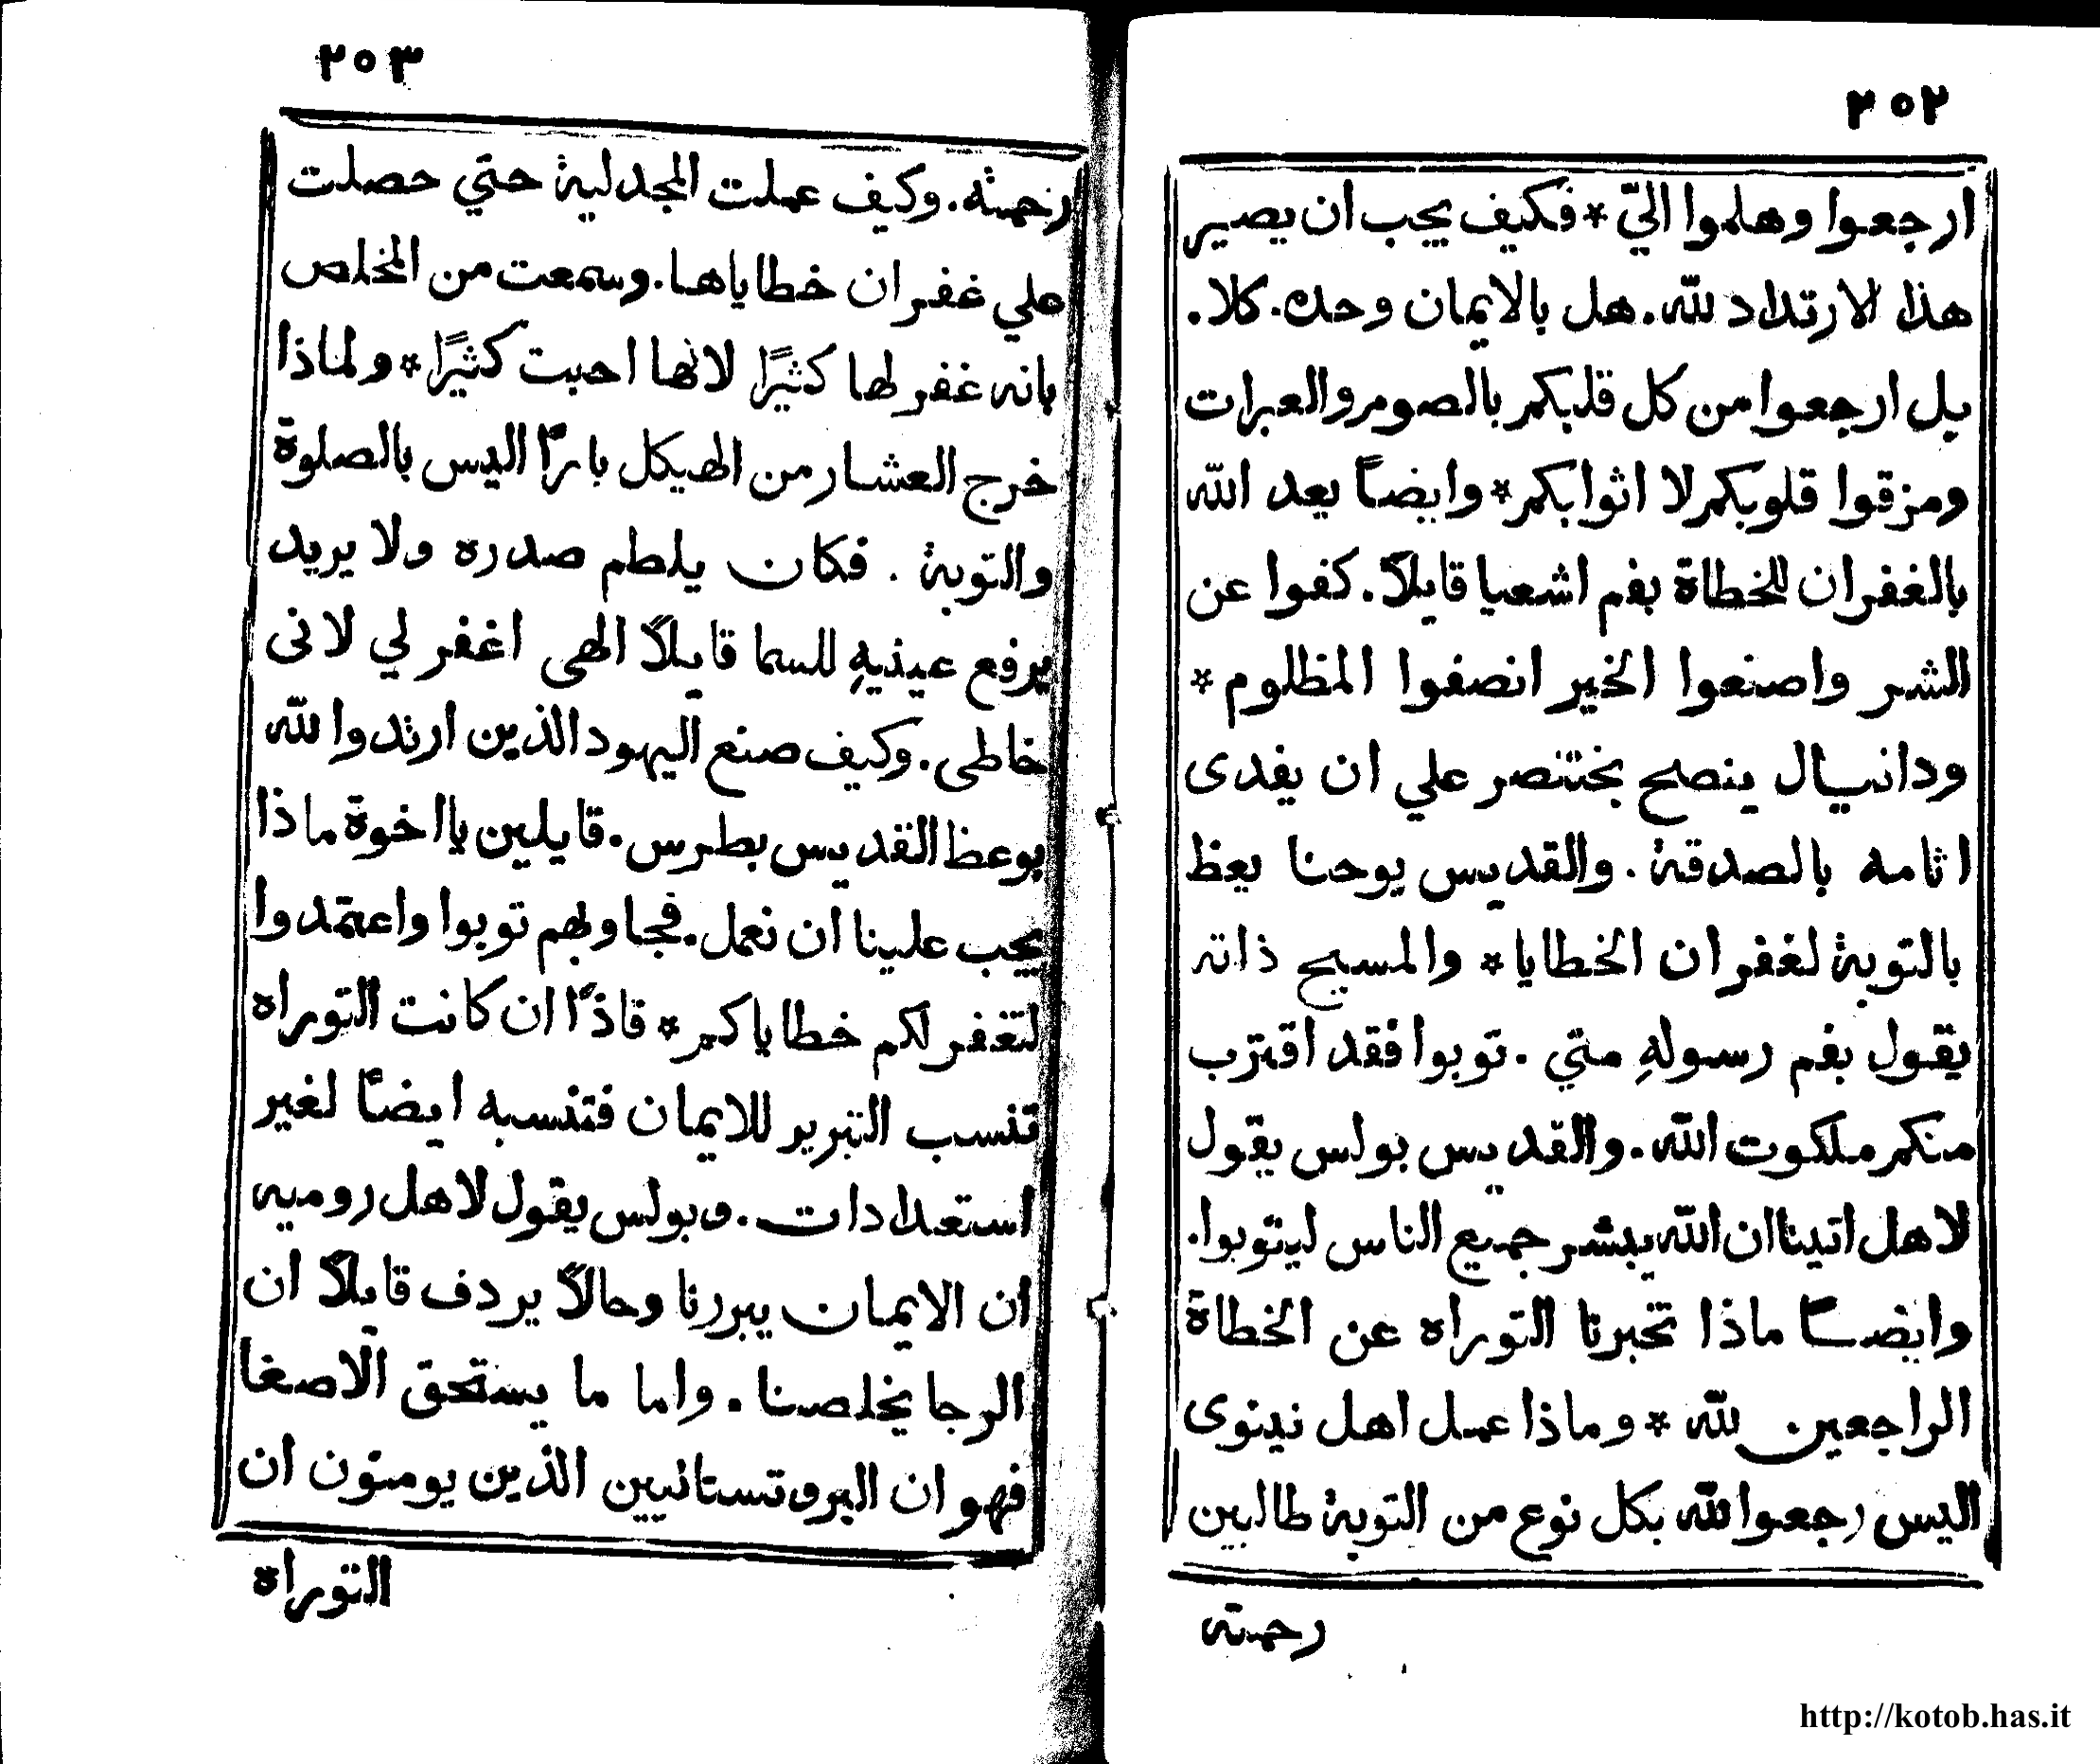 ٢٥٢
ارجعوا وهلموا اليّ * فكيف يجب ان يصير
هذا الارتداد لله. هل بالايمان وحده. كلا.
بل ارجعوا من كل قلبكم بالصوم والعبرات
ومزقوا قلوبكم لا اثوابكم * وايضاً يعد الله
بالغفران للخطاة بفم اشعيا قايلاً. كفوا عن
الشر واصنعوا الخير انصفوا المظلوم *
ودانيال ينصح بختنصر علي ان يفدى
اثامه بالصدقة. والقديس يوحنا يعظ
بالتوبة لغفران الخطايا * والمسيح ذاته
يقول بفم رسولهِ متي. توبوا فقد اقترب
منكم ملكوت الله. والقديس بولس يقول
لاهل اتينا ان الله يبشر جميع الناس ليتوبوا.
وايضاً ماذا تخبرنا التوراه عن الخطاة
الراجعين لله * وماذا عمل اهل نينوى
اليس رجعوا لله بكل نوع من التوبة طالبين
رحمته
٢٥٣
رحمته. وكيف عملت المجدلية حتي حصلت
علي غفران خطاياها. وسمعت من المخلص
بانه غفر لها كثيرًا لانها احبت كثيرًا * ولماذا
خرج العشار من الهيكل بارًا اليس بالصلوة
والتوبة. فكان يلطم صدره ولا يريد
يرفع عينيهِ للسما قايلاً الهى اغفر لي لانى
خاطى. وكيف صنع اليهود الذين ارتدوا لله
بوعظ القديس بطرس. قايلين يا اخوة ماذا
يجب علينا ان نعمل. فجاوبهم توبوا واعتمدوا
لتغفر لكم خطاياكم * فاذًا ان كانت التوراه
تنسب التبرير للايمان فتنسبه ايضاً لغير
استعدادات. وبولس يقول لاهل روميه
ان الايمان يبررنا وحالاً يردف قايلاً ان
الرجا يخلصنا. واما ما يستحق الاصغا
فهو ان البروتستانيين الذين يومنون ان
التوراه
http://kotob.has.it